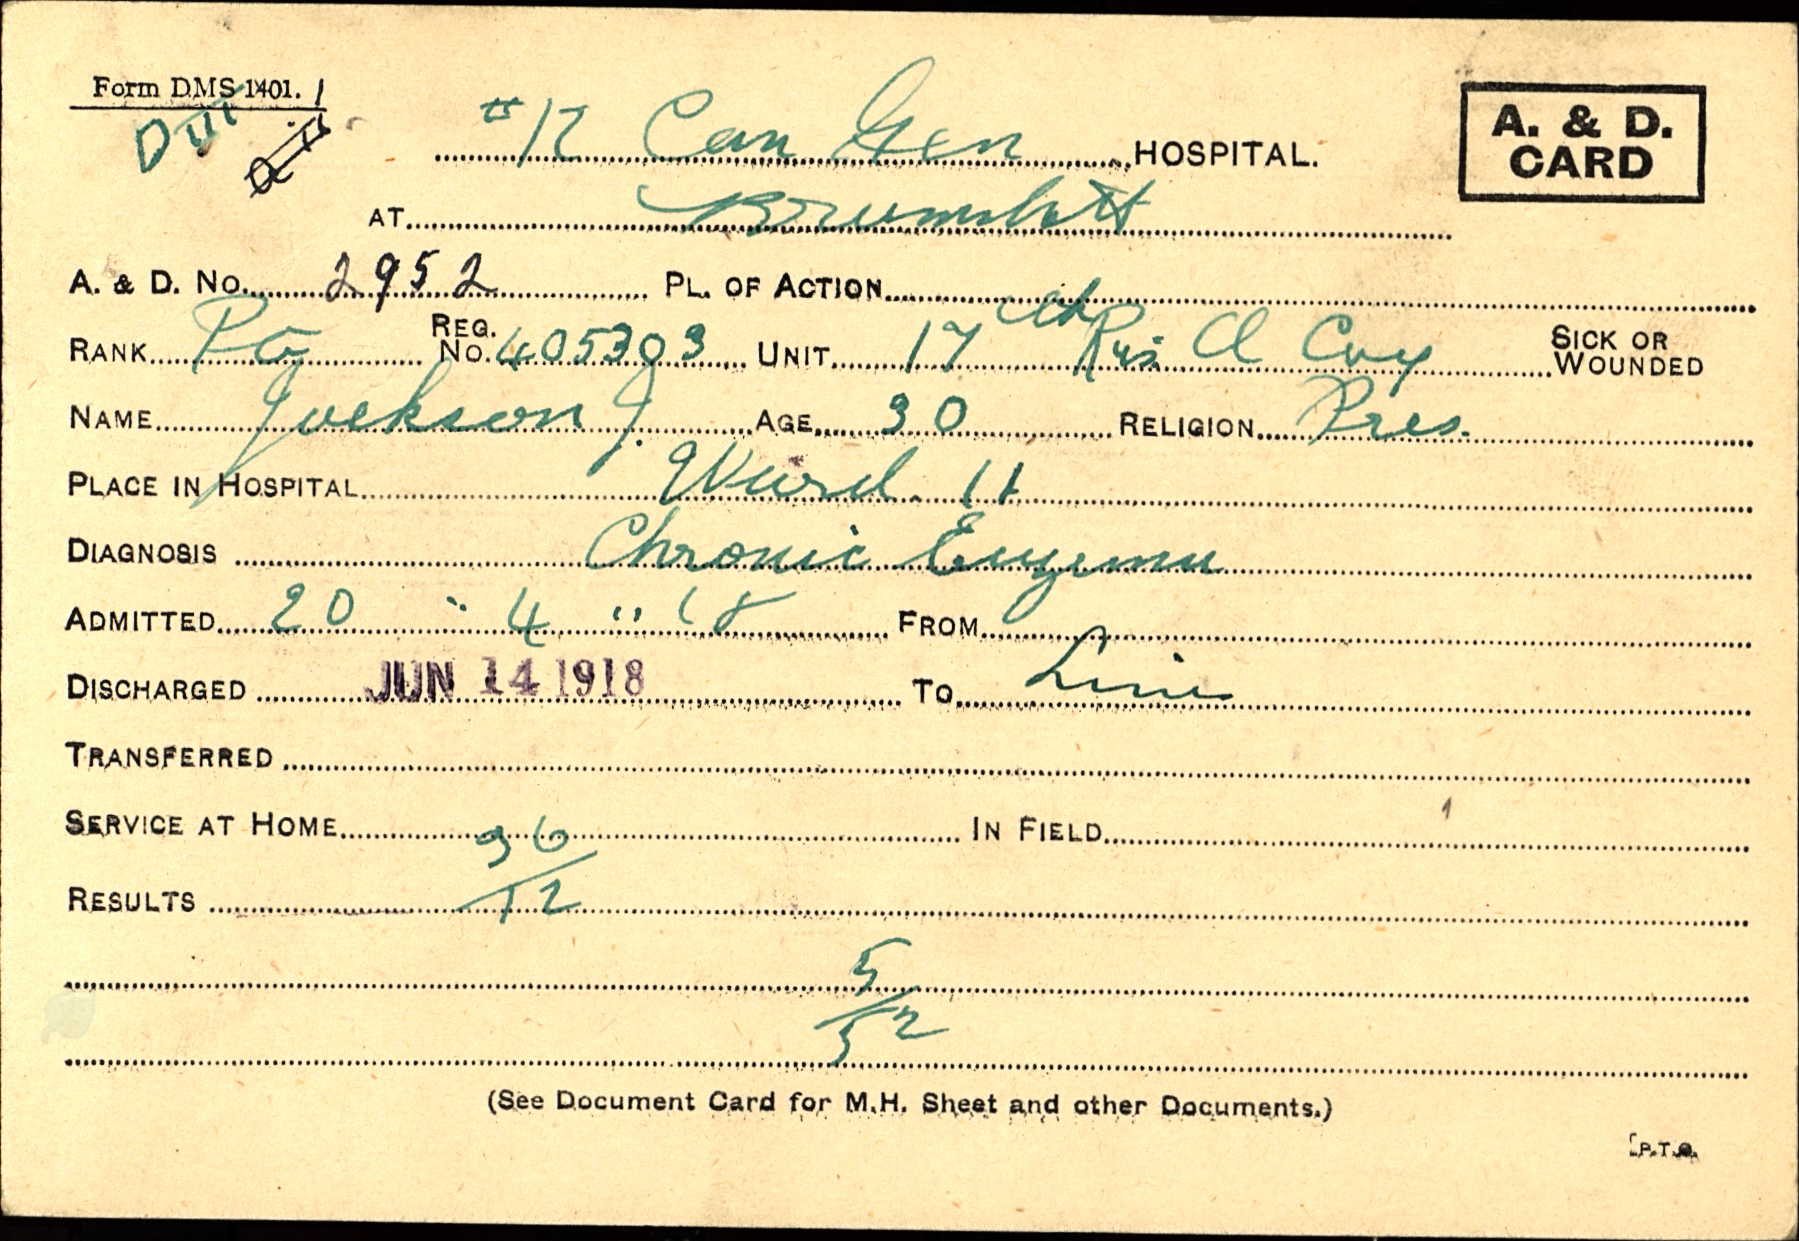 Form DMS 1401. 1
Out
A. & D. CARD
#12 Can Gen HOSPITAL.
AT Bramshott
A. & D. No. 2952 PL. OF ACTION
RANK Pte REG. No. 405303 UNIT 17th Res A Coy SICK OR WOUNDED
NAME Jackson J. AGE 30 RELIGION Pres.
PLACE IN HOSPITAL Ward 11
DIAGNOSIS Chronic Eczema
ADMITTED 20 " 4 " 18 FROM
DISCHARGED JUN 14 1918 TO Line
TRANSFERRED
SERVICE AT HOME 36/12 IN FIELD
RESULTS
5/52
(See Document Card for M.H. Sheet and other Documents.)
[P.T.O.